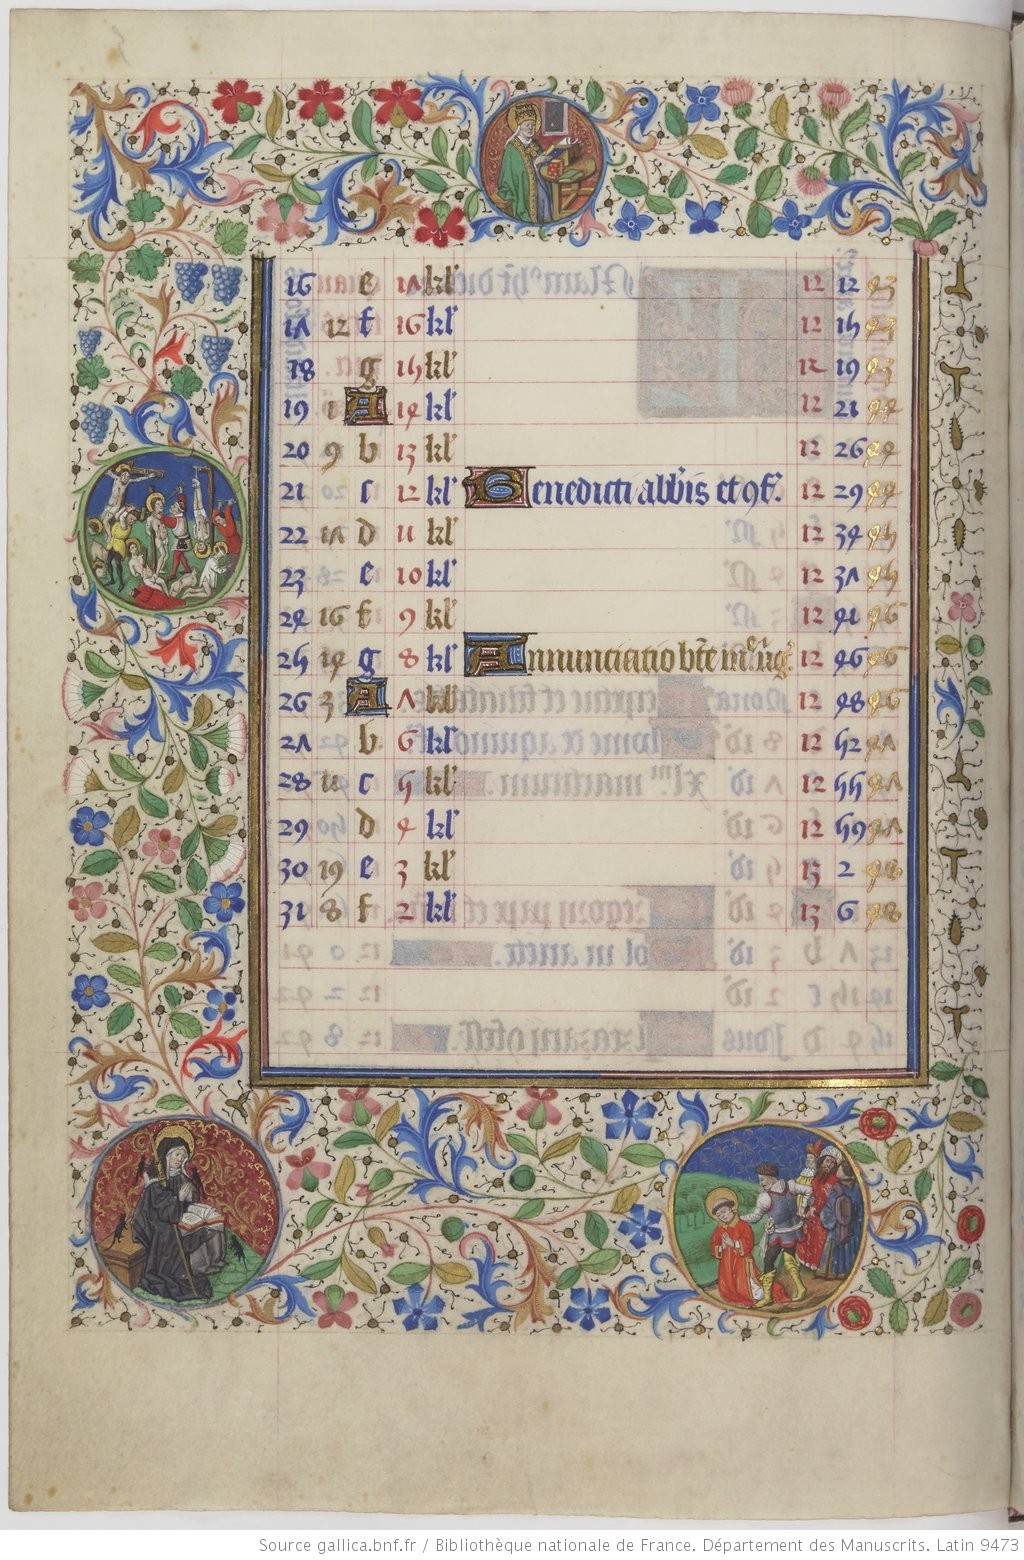 16 e 17 kl' 12 12 43
17 12 f 16 kl' 12 15 43
18 g 15 kl' 12 19 43
19 1 A 14 kl' 12 21 44
20 9 b 13 kl' 12 26 44
21 c 12 kl' Benedicti abb'is et 9f. 12 29 44
22 17 d 11 kl' 12 34 45
23 e 10 kl' 12 37 45
24 16 f 9 kl' 12 41 46
25 14 g 8 kl' Annunciatio bte m' v'g. 12 46 46
26 3 A 7 kl' 12 48 46
27 b 6 kl' 12 52 47
28 11 c 5 kl' 12 55 47
29 d 4 kl' 12 59 47
30 19 e 3 kl' 13 2 48
31 8 f 2 kl' 13 6 48
Source gallica.bnf.fr / Bibliothèque nationale de France. Département des Manuscrits. Latin 9473